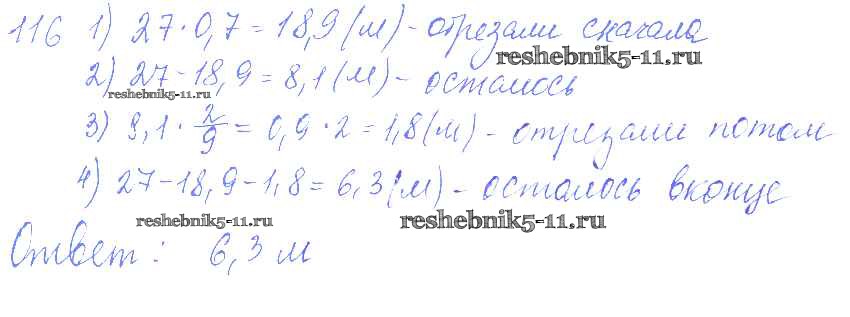 116 1) 27·0,7=18,9(м)- отрезали сначала
reshebnik5-11.ru
2) 27-18,9=8,1(м)- осталось
reshebnik5-11.ru
3) 8,1·2/9=0,9·2=1,8(м)- отрезали потом
4) 27-18,9-1,8=6,3(м)- осталось вконце
reshebnik5-11.ru reshebnik5-11.ru
Ответ: 6,3 м